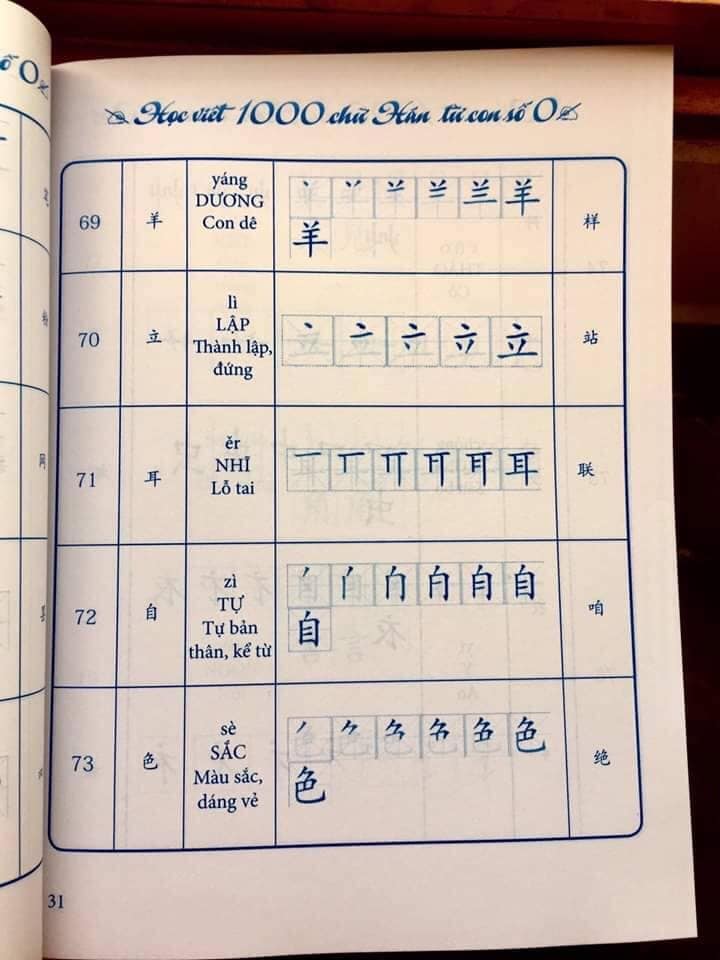 Học viết 1000 chữ Hán từ con số 0
69
羊
yáng
DƯƠNG
Con dê
羊
样
70
立
lì
LẬP
Thành lập,
đứng
立
站
71
耳
ěr
NHĨ
Lỗ tai
耳
联
72
自
zì
TỰ
Tự bản
thân, kể từ
自
咱
73
色
sè
SẮC
Màu sắc,
dáng vẻ
色
绝
31